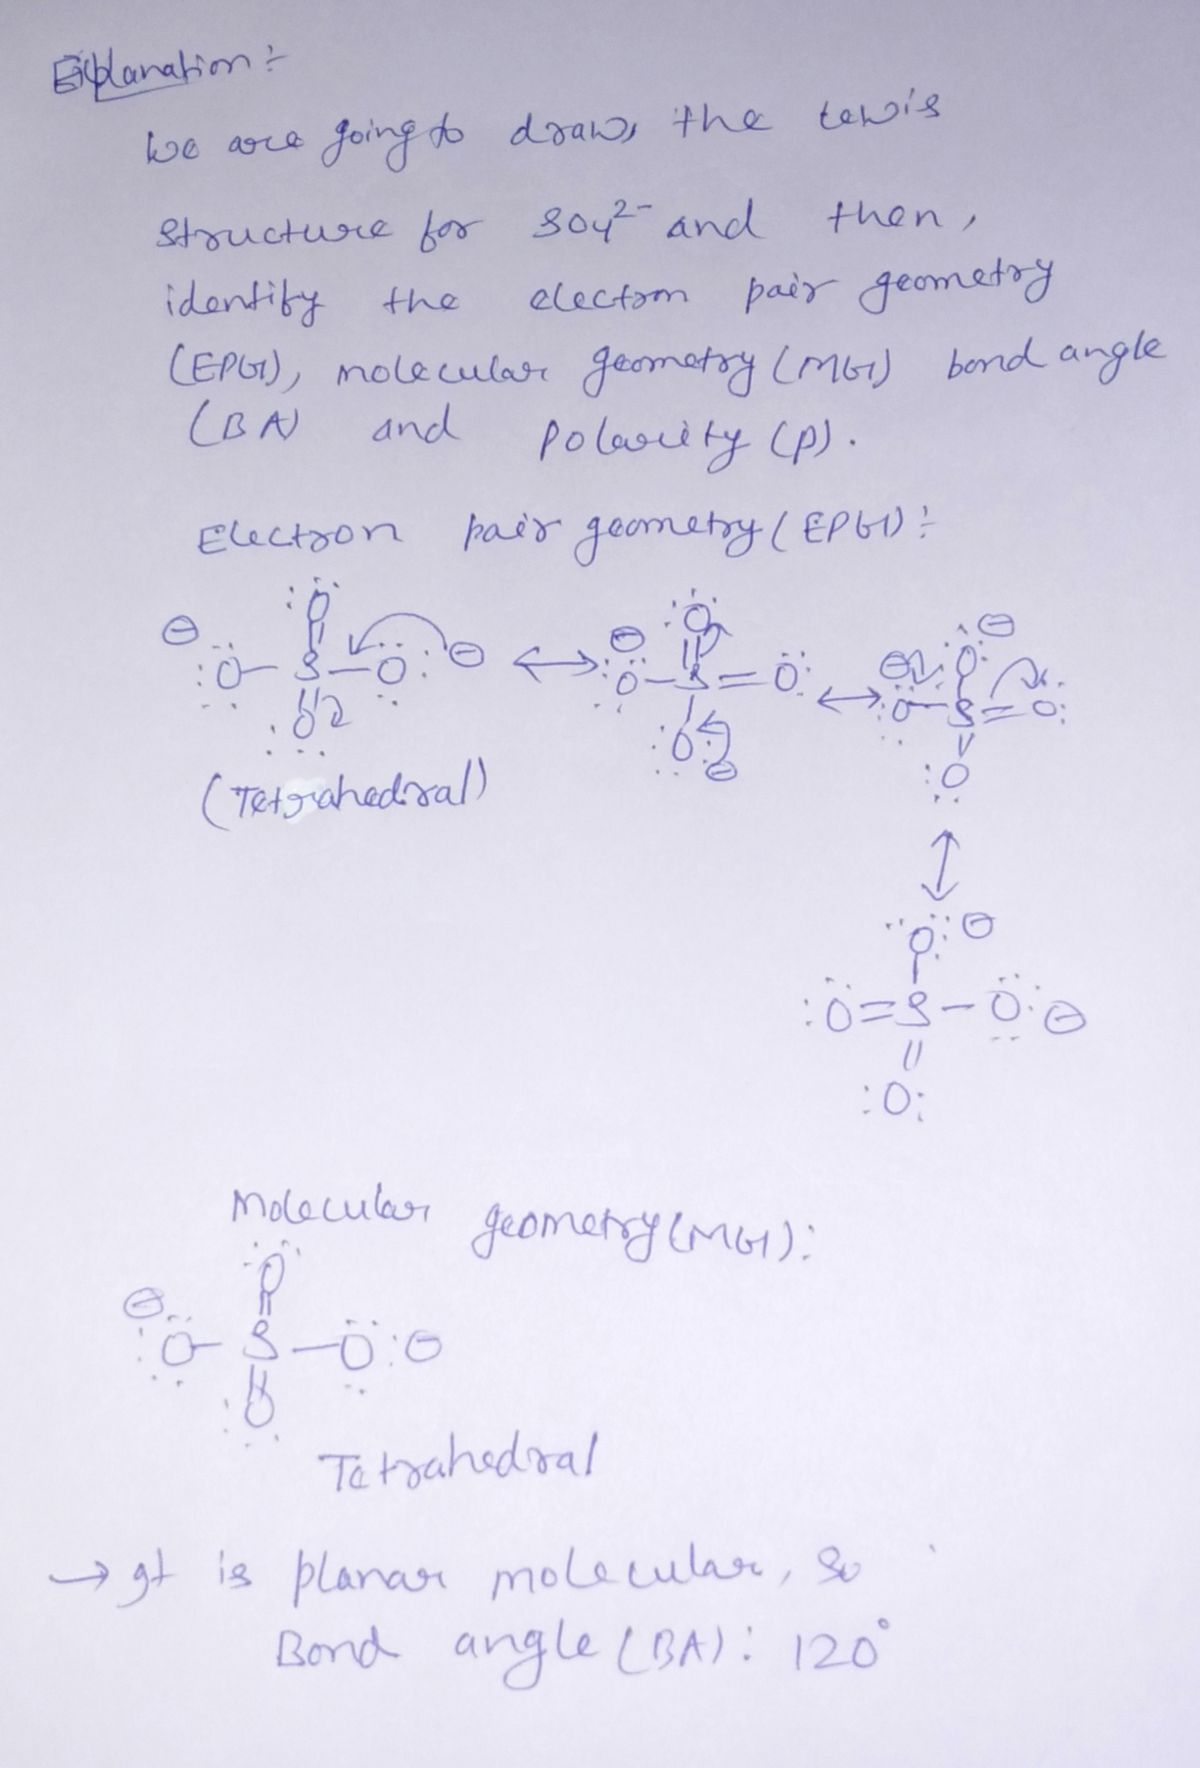 Explanation :-
We are going to draw, the Lewis
structure for SO4²⁻ and then,
identify the electron pair geometry
(EPG), molecular geometry (MG) bond angle
(BA) and Polarity (P).
Electron pair geometry (EPG) :-
(Tetrahedral)
Molecular geometry (MG):
Tetrahedral
→ It is planar molecular, So
Bond angle (BA): 120°